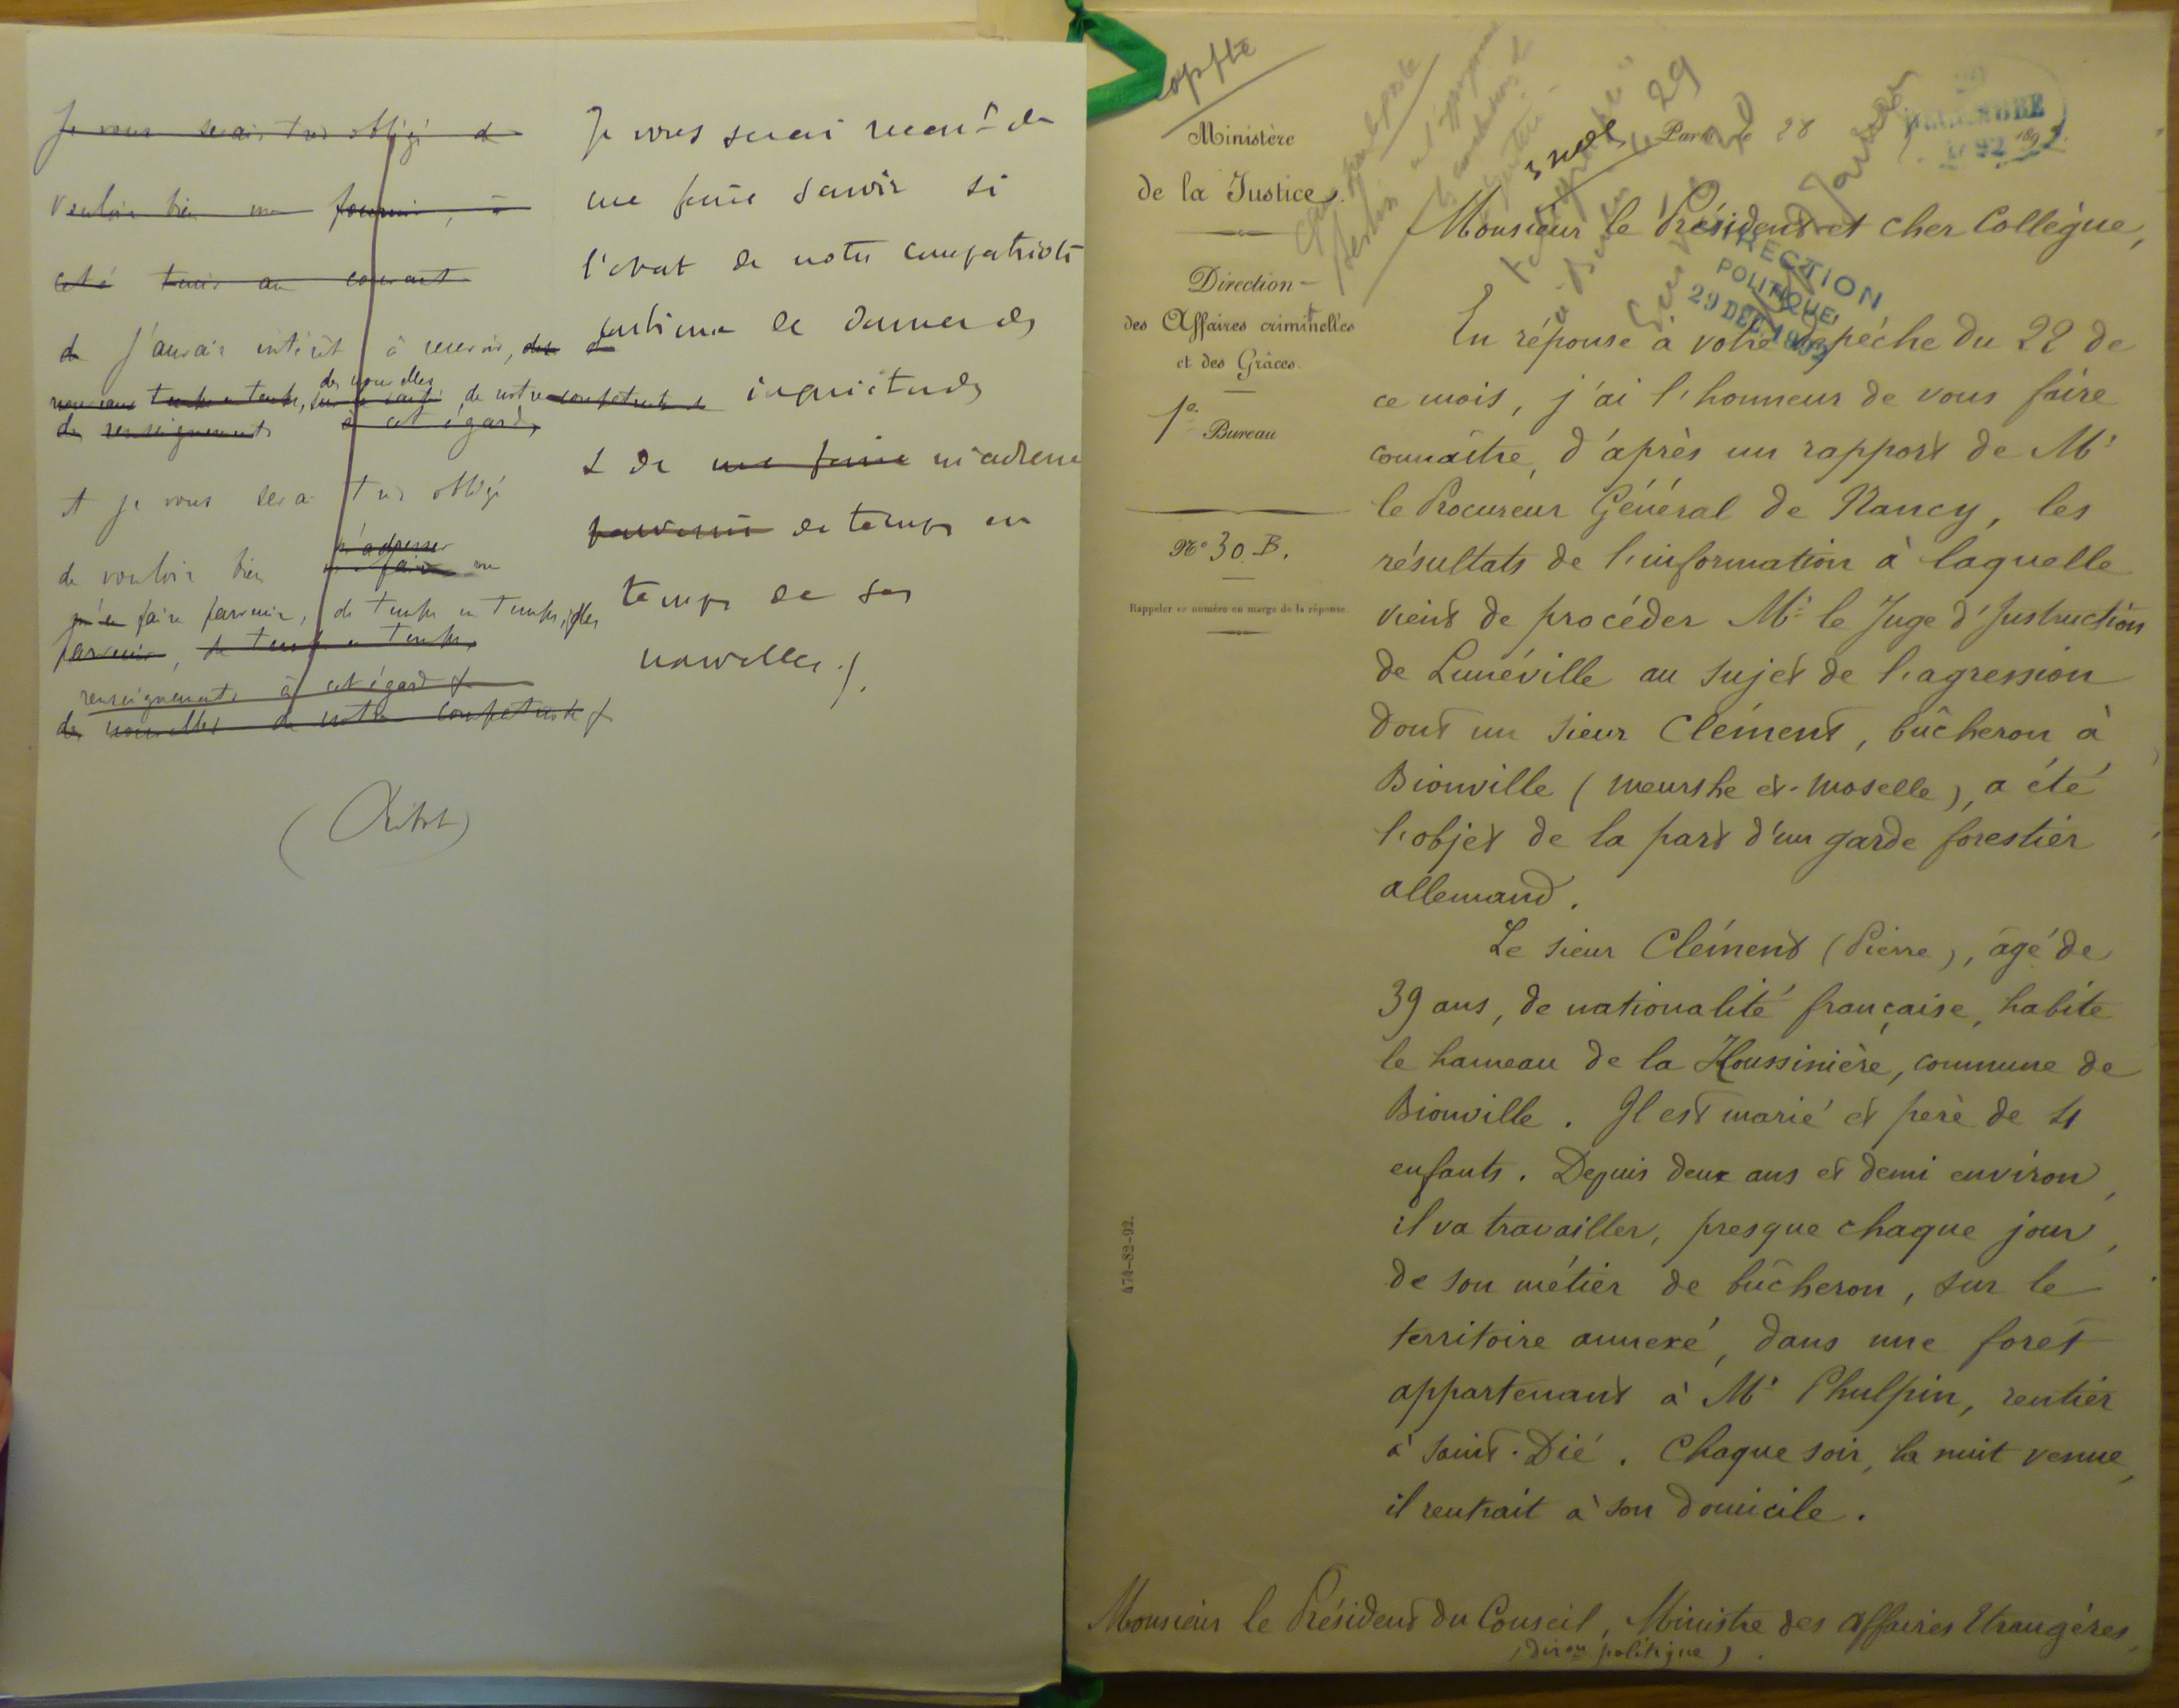 Je vous serais très obligé de
vouloir bien me fournir, à
cet é tenir au courant
de J'aurais intérêt à recevoir,
des nouvelles
temps en temps, de notre compatriote
des renseignements à cet égard,
et je vous serai très obligé
m'adresser
de vouloir bien faire me
m'en faire parvenir, de temps en temps, des
parvenir, de temps en temps,
renseignements à cet égard
des nouvelles de notre compatriote
Je vous serai reconnt de
me faire savoir si
l'état de notre compatriote
continue de donner des
inquiétudes
& de me faire m'adresser
parvenir de temps en
temps de ses
nouvelles ./.
Ministère
de la Justice.
Direction
des Affaires criminelles
et des Grâces.
1e Bureau
No 30. B.
Rappeler ce numéro en marge de la réponse.
474-82-92.
Paris, le 28
189
DIRECTION
POLITIQUE
29 DEC. 1892
Monsieur le Président et cher Collègue,
En réponse à votre dépêche du 22 de
ce mois, j'ai l'honneur de vous faire
connaître, d'après un rapport de Mr
le Procureur Général de Nancy, les
résultats de l'information à laquelle
vient de procéder Mr le Juge d'Instruction
de Lunéville au sujet de l'agression
dont un sieur Clément, bûcheron à
Bionville (Meurthe et-Moselle), a été
l'objet de la part d'un garde forestier
allemand.
Le sieur Clément (Pierre), âgé de
39 ans, de nationalité française, habite
le hameau de la Houssinière, commune de
Bionville. Il est marié et père de 4
enfants. Depuis deux ans et demi environ,
il va travailler, presque chaque jour,
de son métier de bûcheron, sur le
territoire annexé, dans une forêt
appartenant à Mr Phulpin, rentier
à Saint-Dié. Chaque soir, la nuit venue,
il rentrait à son domicile.
Monsieur le Président du Conseil, Ministre des Affaires Etrangères,
(Diron politique).